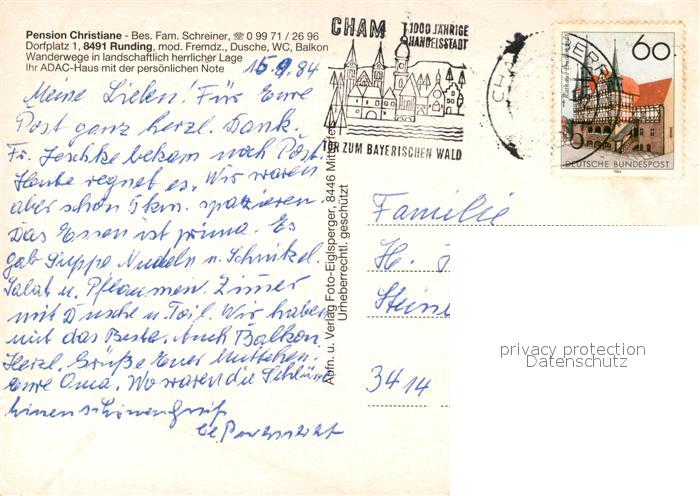 Pension Christiane - Bes. Fam. Schreiner, ☏ 0 99 71 / 26 96
Dorfplatz 1, 8491 Runding, mod. Fremdz., Dusche, WC, Balkon
Wanderwege in landschaftlich herrlicher Lage
Ihr ADAC-Haus mit der persönlichen Note
15.9.84
Meine Lieben! Für Eure
Post ganz herzl. Dank.
Fr. Jeschke bekam noch Post.
Heute regnet es. Wir waren
aber schon 5 km. spazieren.
Das Essen ist prima. Es
gab Suppe Nudeln u. Schnitzel.
Salat u. Pflaumen. Zimer
mit Dusche u. Toil. Wir haben
mit das Beste. Auch Balkon.
Herzl. Grüße Euer Muttchen.
Eure Oma. Wo waren die Schlüssel
einen schönen Gruß
Apfn. u. Verlag Foto-Eiglsperger, 8446 Mitterfels
Urheberrechtl. geschützt
CHAM
1000 JÄHRIGE
HANDELSSTADT
TOR ZUM BAYERISCHEN WALD
60
DEUTSCHE BUNDESPOST
1984
Familie
H.
3414
privacy protection
Datenschutz